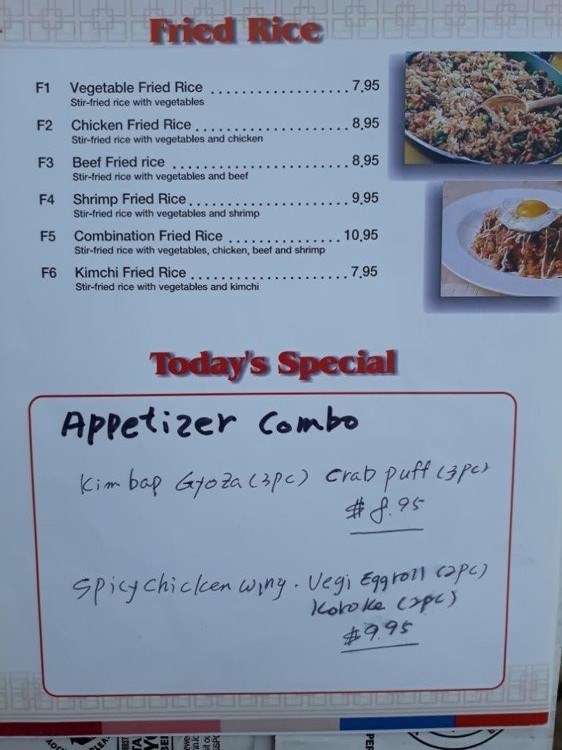 Fried Rice
F1 Vegetable Fried Rice ..................... 7.95
Stir-fried rice with vegetables
F2 Chicken Fried Rice ....................... 8.95
Stir-fried rice with vegetables and chicken
F3 Beef Fried rice .......................... 8.95
Stir-fried rice with vegetables and beef
F4 Shrimp Fried Rice ........................ 9.95
Stir-fried rice with vegetables and shrimp
F5 Combination Fried Rice ................. 10.95
Stir-fried rice with vegetables, chicken, beef and shrimp
F6 Kimchi Fried Rice ........................ 7.95
Stir-fried rice with vegetables and kimchi
Today's Special
Appetizer Combo
Kimbap Gyoza (3pc) Crab puff (3pc)
$8.95
Spicy chicken wing. Vegi Eggroll (2pc)
Koroke (2pc)
$9.95